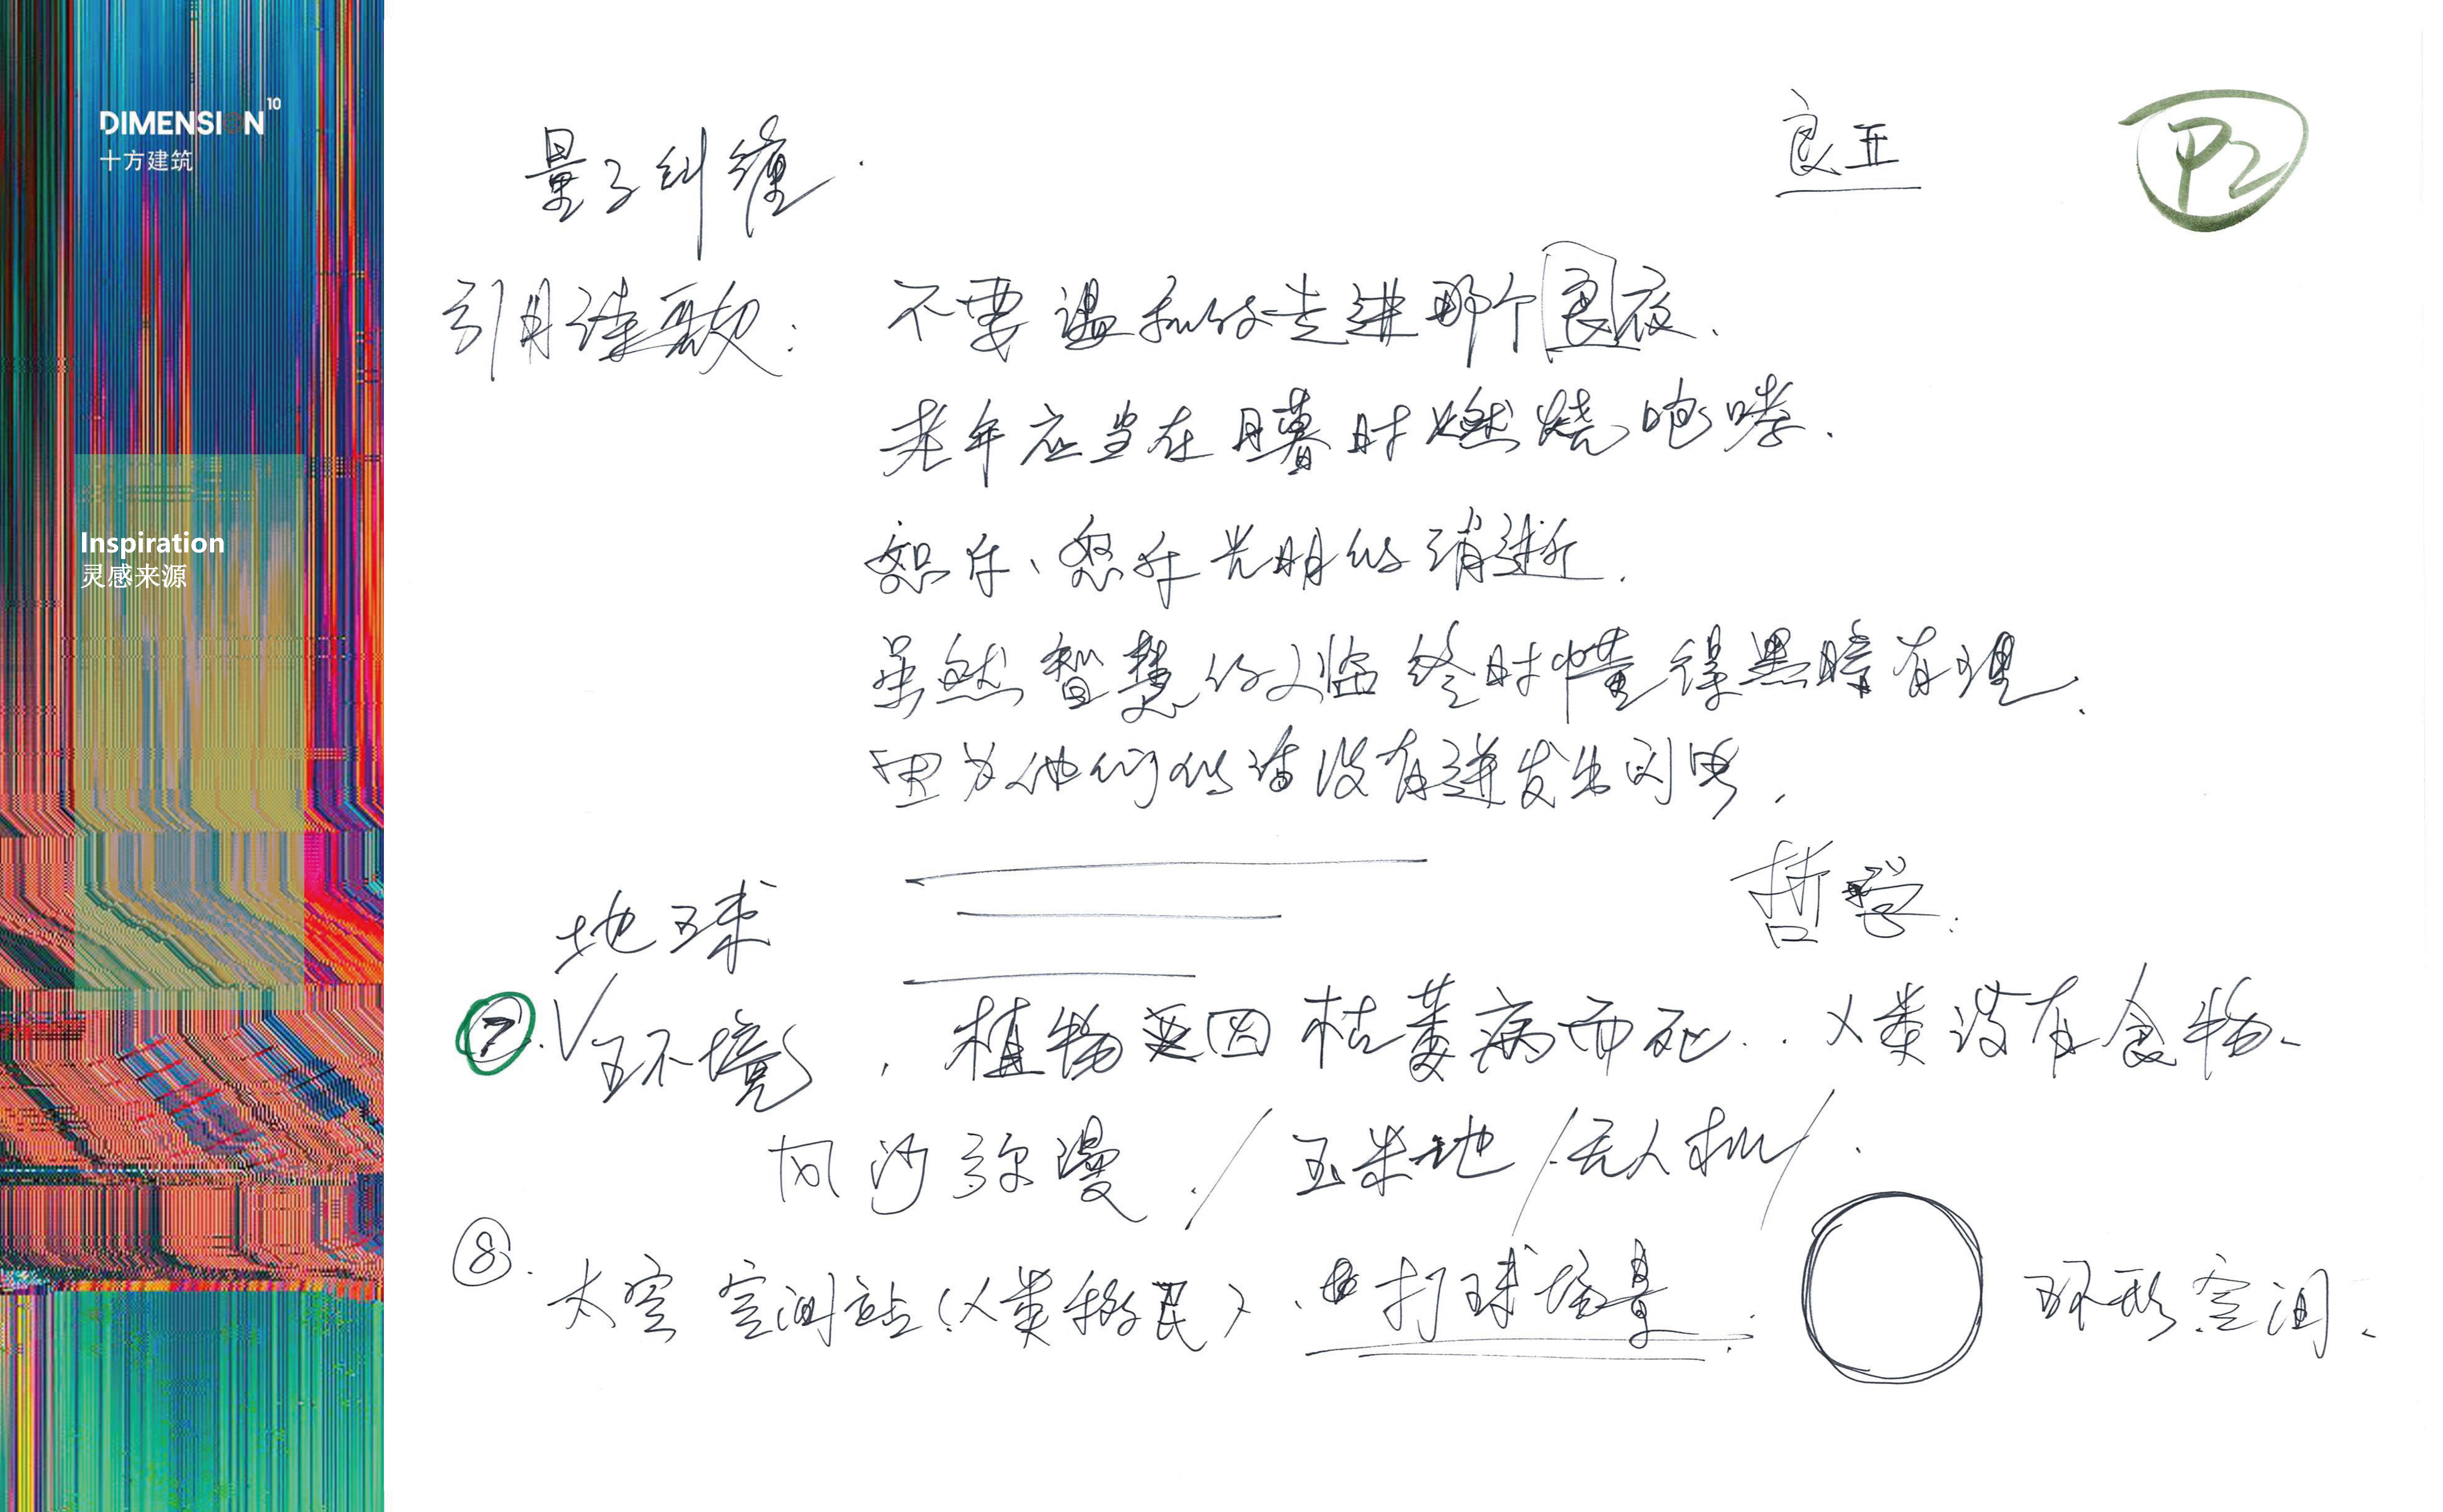 DIMENSION 10
十方建筑
Inspiration
灵感来源
P2
量子纠缠.
引用诗歌: 不要温和的走进那个良夜.
老年应当在日暮时燃烧咆哮.
怒斥、怒斥光明的消逝.
虽然智慧的人临终时懂得黑暗有理.
因为他们的话没有迸发出闪电,
哲学.
地球
⑦. V 环境, 植物 因枯萎病而死.. 人类没有食物、
风沙弥漫. / 玉米地 / 无人机 / .
⑧. 太空 空间站 (人类移民) . 打球场景. 环形空间、